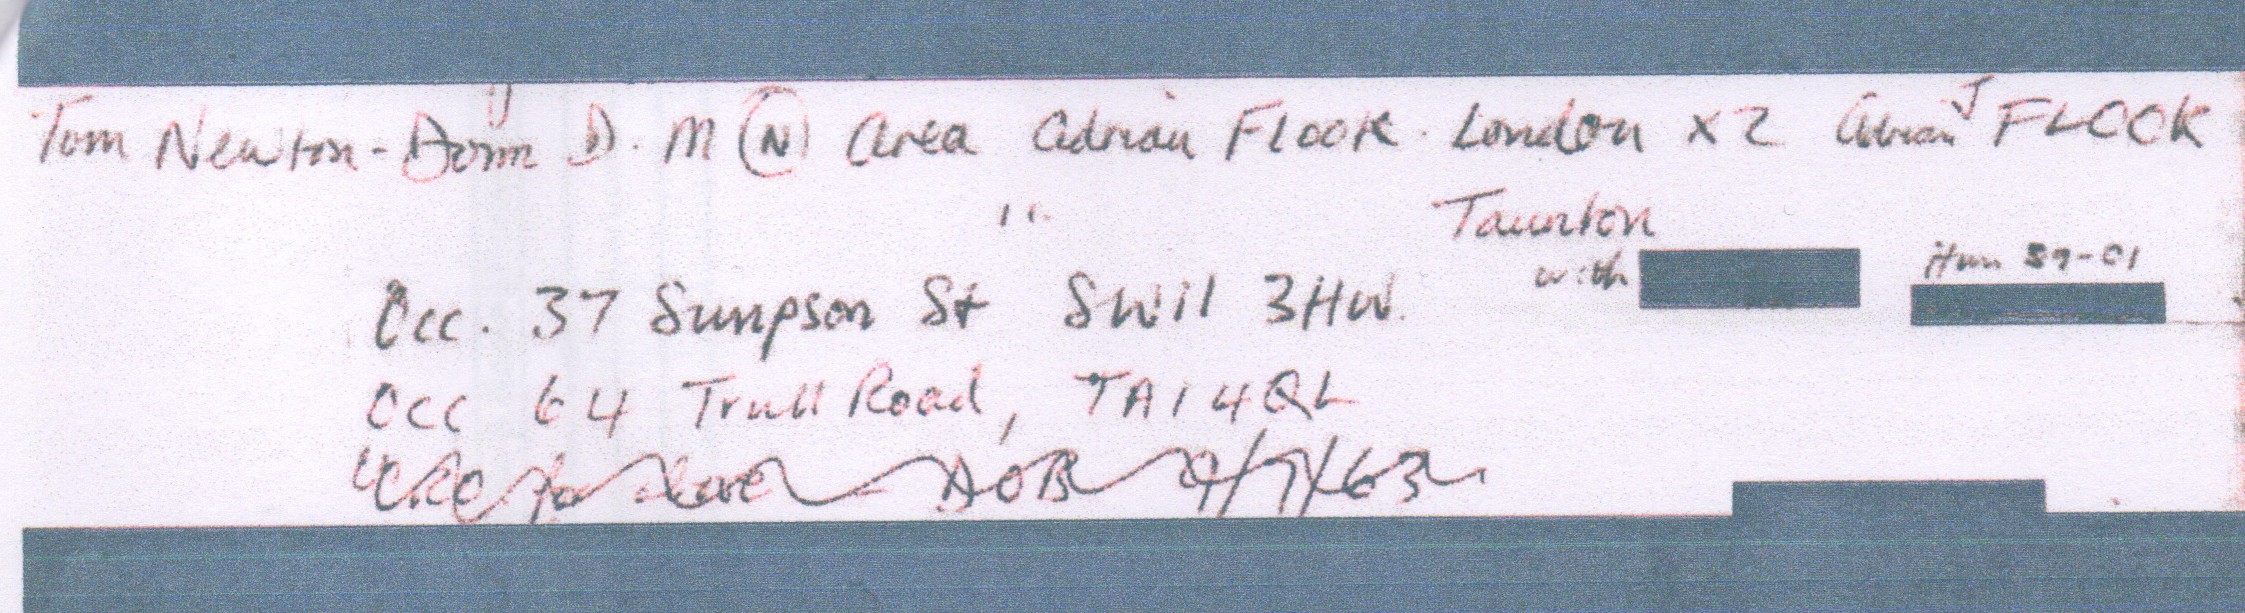 Tom Newton-Dunn D. M (N) area Adrian FLOOK. London x 2 Adrian J FLOOK
" Taunton
with Hun 39-01
Occ. 37 Simpson St SW11 3HW.
Occ 64 Trull Road, TA1 4QL
"CRO for above DOB 9/7/63